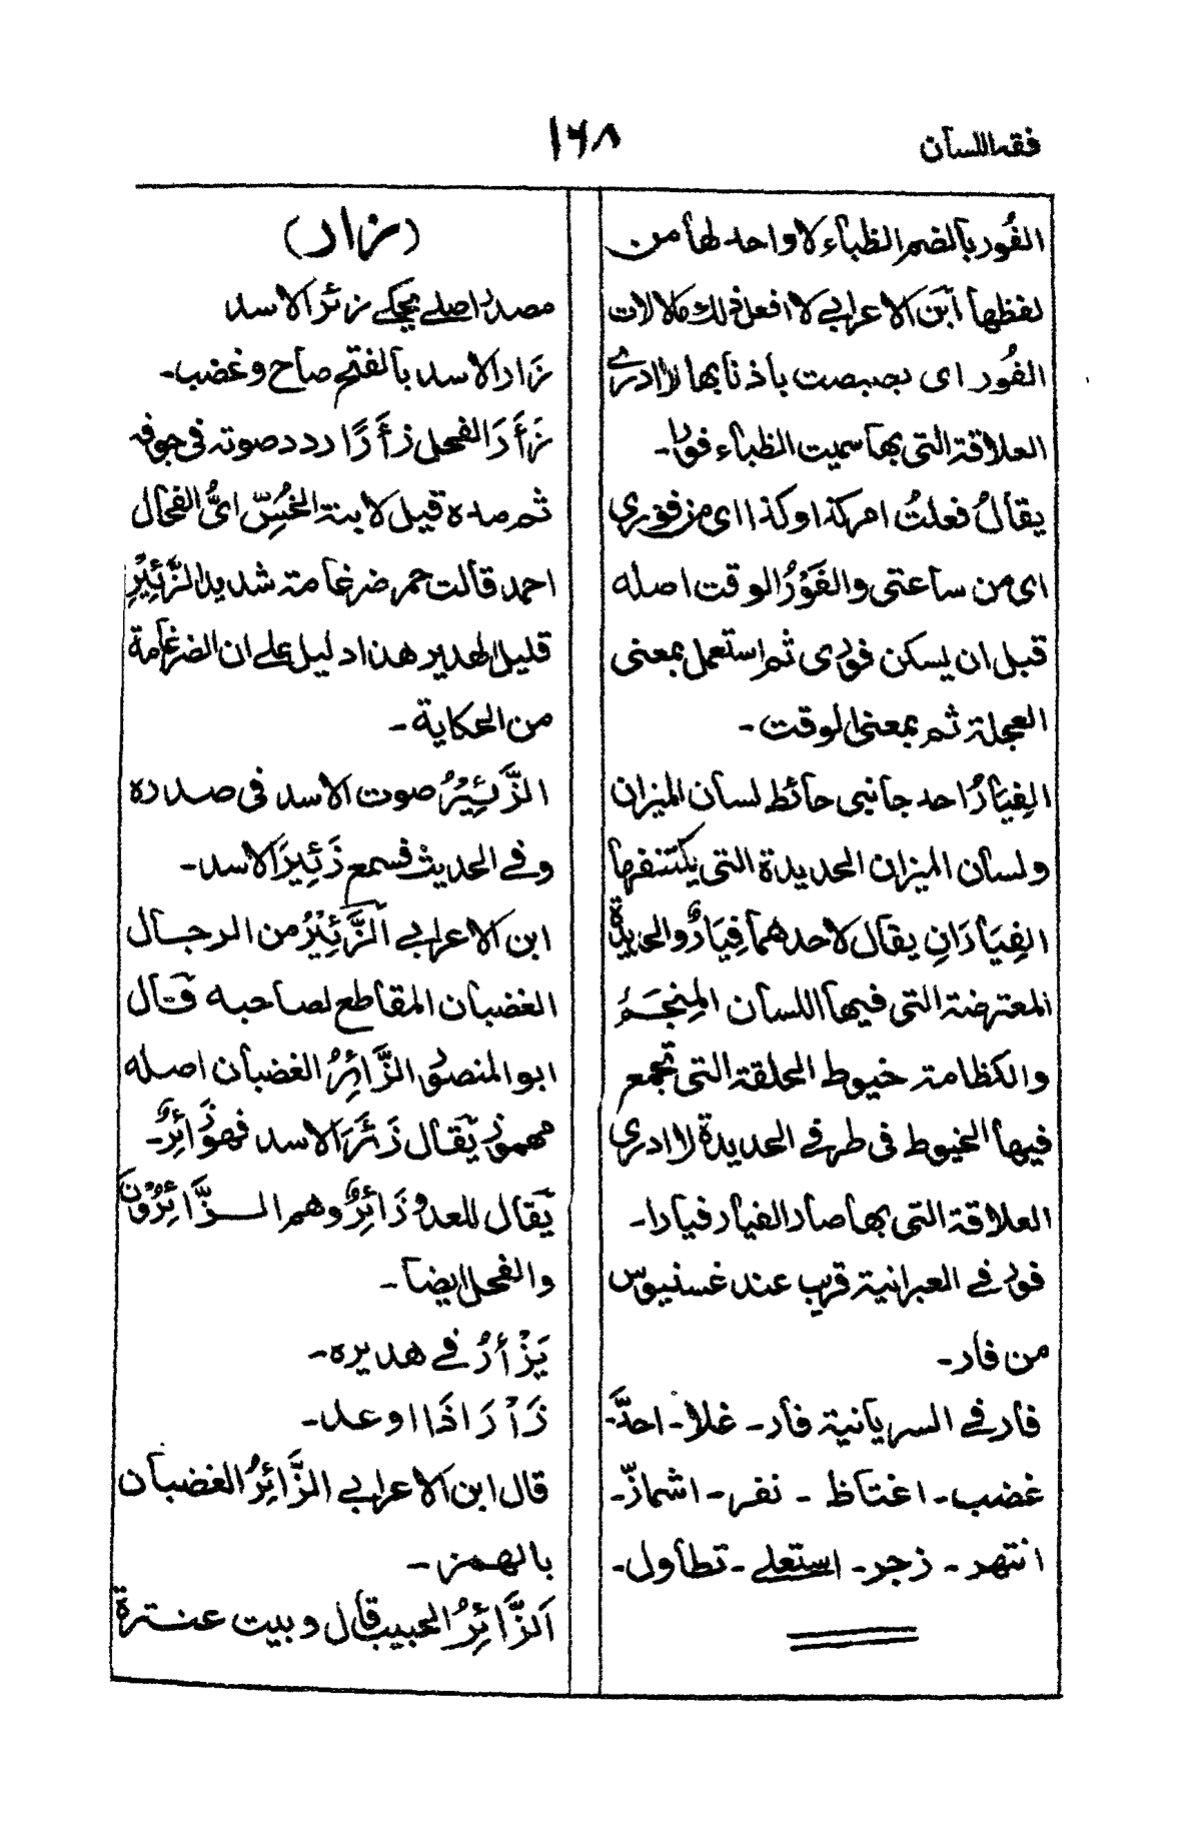 فقه اللسان
١٦٨
الفُور بالضم الظباء لا واحد لها من
لفظها ابن الاعرابي لا افعل ذلك ما لالات
الفُور اى بصبصت باذنابها لا ادرے
العلاقة التى بها سميت الظباء فورا۔
يقالُ فعلتُ امر كذا وكذا اى من فورى
اى من ساعتى والفَوْرُ الوقت اصله
قبل ان يسكن فورى ثم استعمل بمعنى
العجلة ثم بمعنى الوقت۔
الفِيَارُ احد جانبى حائط لسان الميزان
ولسان الميزان الحديدة التى يكتنفها
الفِيَارَانِ يقال لاحدهما فِيَارٌ والحديدة
المعترضة التى فيها اللسان المِنجَمُ
والكظامة خيوط الحلقة التى تجمع
فيها الخيوط فى طرفے الحديدة لا ادرى
العلاقة التى بها صار الفيار فيارا۔
فور فے العبرانية قريب عند غسنيوس
من فار۔
فار فے السريانية فار۔ غلا۔ احتدَّ۔
غضب۔ اغتاظ۔ نفر۔ اشمازّ۔
انتهر۔ زجر۔ استعلے۔ تطاول۔
(زار)
مصدر اصلے محكے زئر الاسد
زار الاسد بالفتح صاح وغضب۔
زَأَرَ الفحل زأرًا ردد صوته فى جوفه
ثم مده قيل لابنة الخُسِّ اىُّ الفحال
احمد قالت حمر ضرغامة شديد الزَّئِيْرِ
قليل الهدير هذا دليل على ان الضرغامة
من الحكاية۔
الزَّئِيْرُ صوت الاسد فى صدره
وفے الحديث فسمع زَئِيرَ الاسد۔
ابن الاعرابي الزَّئِيْرُ من الرجال
الغضبان المقاطع لصاحبه قال
ابو المنصور الزَّائِرُ الغضبان اصله
مهموز يقال زَئَرَ الاسد فهو زَائِرٌ۔
يقال للعدو زَائِرٌ وهم الزَّائِرُوْنَ
والفحل ايضا۔
يَزْأَرُ فے هديره۔
زَأَرَ اذا اوعد۔
قال ابن الاعرابي الزَّائِرُ الغضبان
بالهمز۔
اَلزَّائِرُ الحبيب قال وبيت عنترة